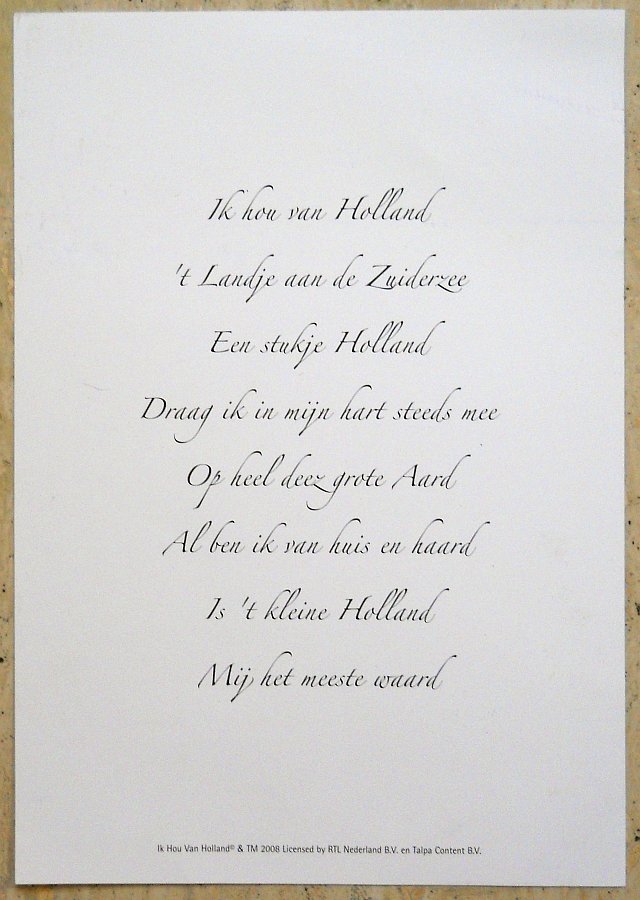 Ik hou van Holland
't Landje aan de Zuiderzee
Een stukje Holland
Draag ik in mijn hart steeds mee
Op heel deez grote Aard
Al ben ik van huis en haard
Is 't kleine Holland
Mij het meeste waard
Ik Hou Van Holland© & TM 2008 Licensed by RTL Nederland B.V. en Talpa Content B.V.